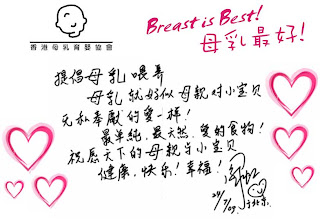 Breast is Best!
母乳最好!
香港母乳育嬰協會
提倡母乳喂养
母乳就好似母親对小宝贝
无私奉献的爱一样!
最单纯,最天然,爱的食物!
祝愿天下的母親与小宝贝
健康,快乐!幸福!
24/7/09 于北京